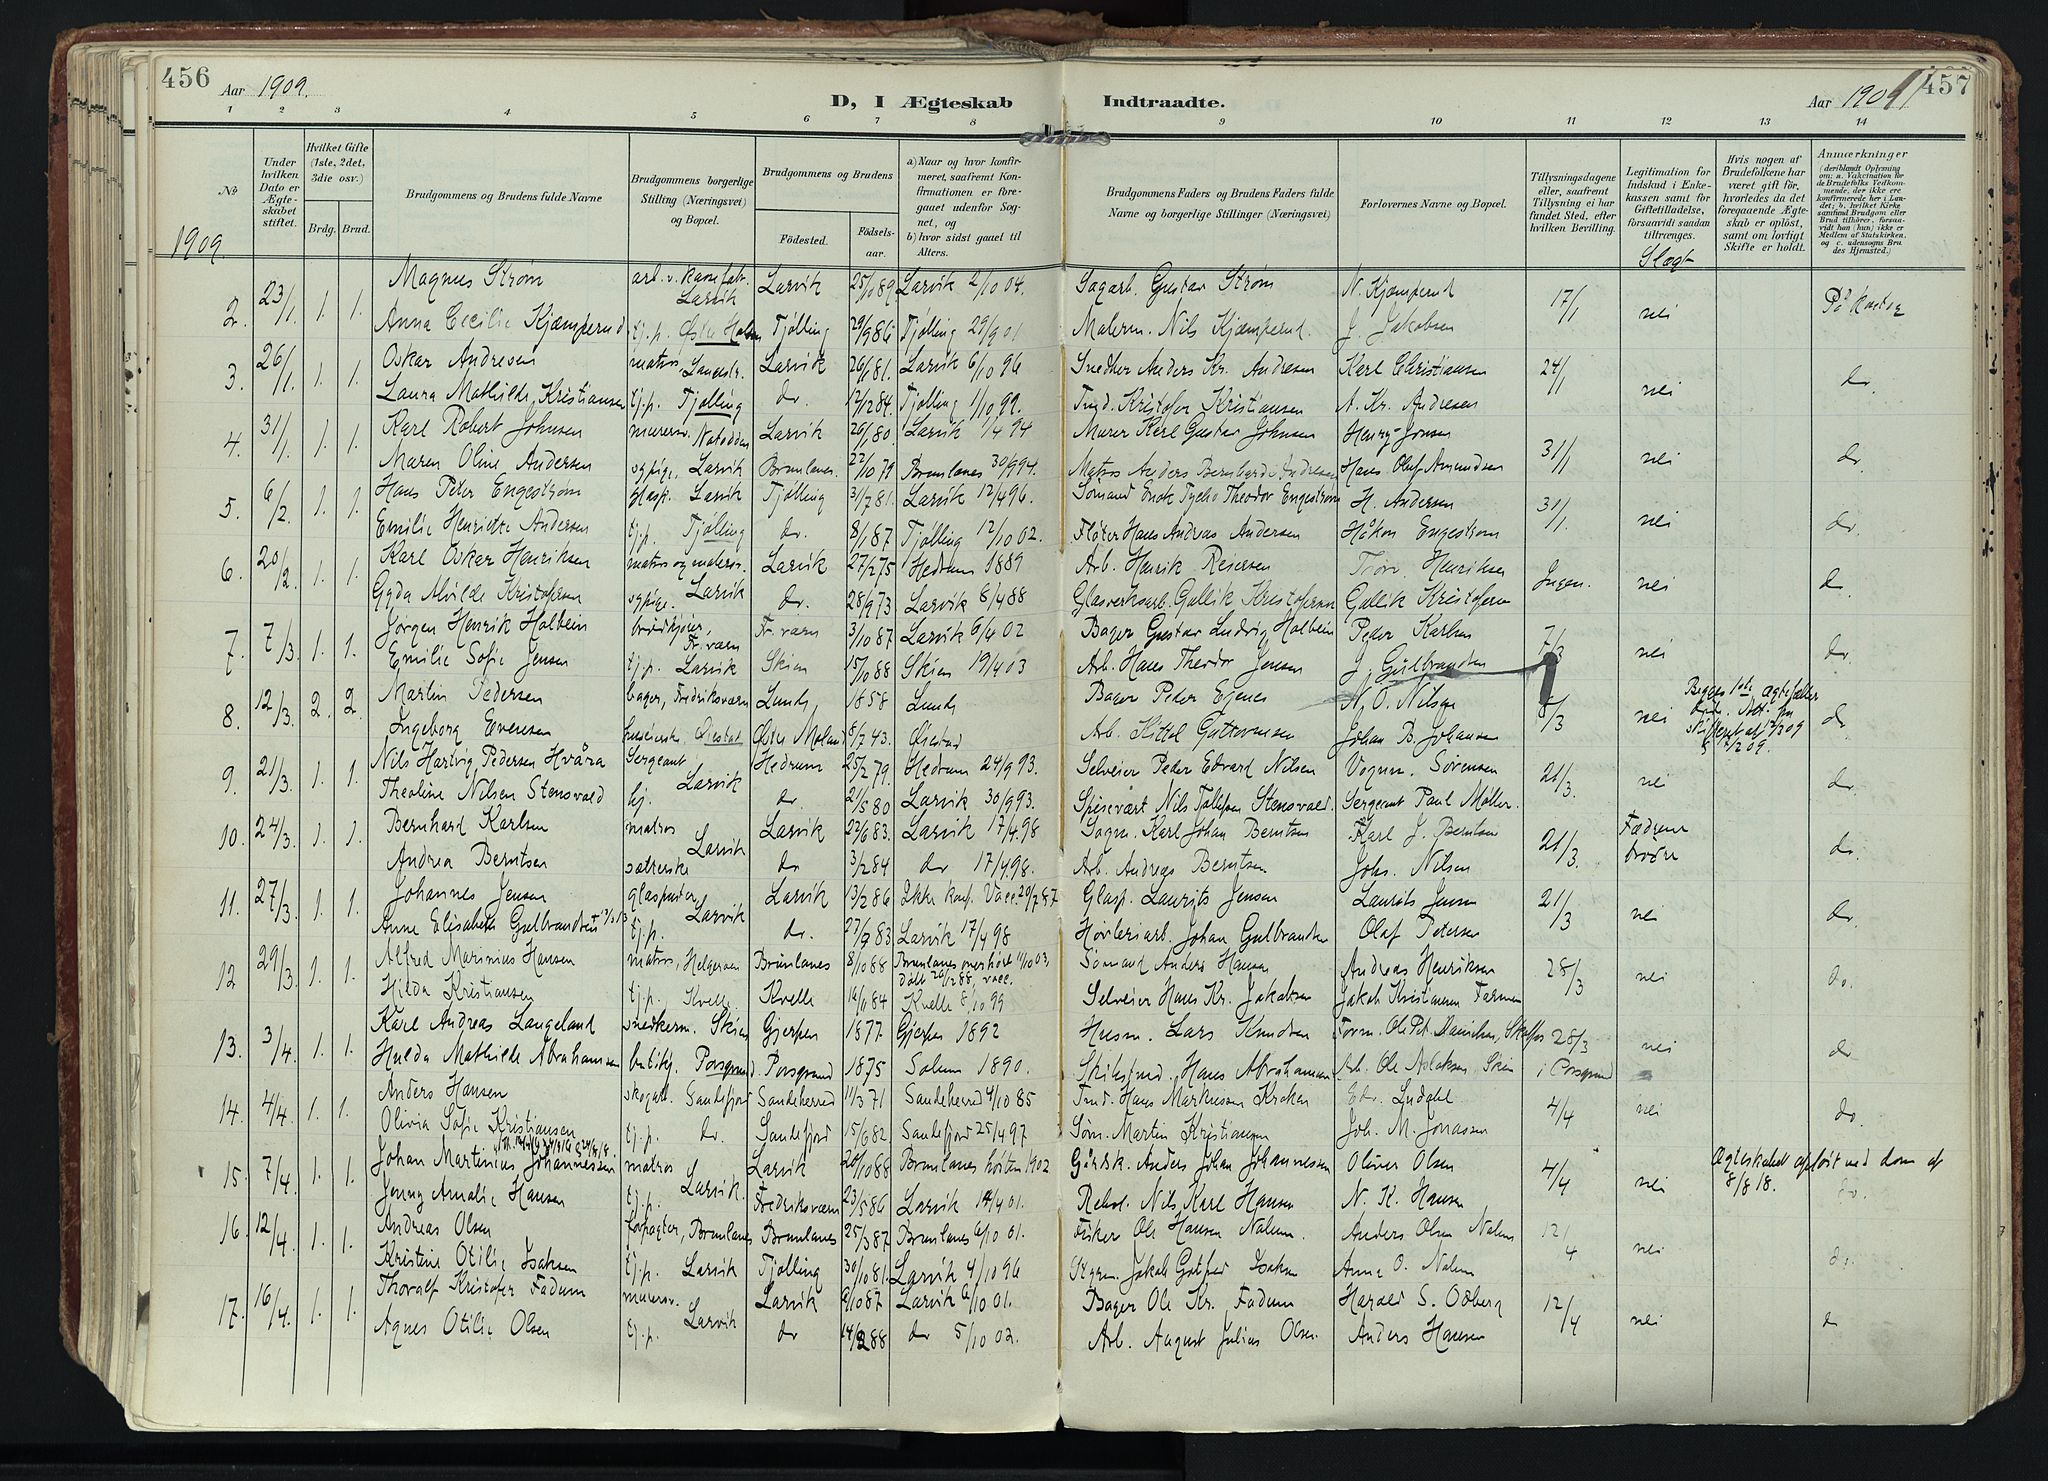 456
Aar 1909.
D, I Ægteskab Indtraadte.
Aar 1909
457
1 2 3 4 5 6 7 8 9 10 11 12 13 14
No
Under hvilken Dato er Ægteskabet stiftet.
Hvilket Gifte (1ste, 2det, 3die osv.)
Brdg. Brud.
Brudgommens og Brudens fulde Navne
Brudgommens borgerlige Stilling (Næringsvei) og Bopæl.
Brudgommens og Brudens
Födested.
Födselsaar.
a) Naar og hvor konfirmeret, saafremt Konfirmationen er foregaaet udenfor Sognet, og
b) hvor sidst gaaet til Alters.
Brudgommens Faders og Brudens Faders fulde Navne og borgerlige Stillinger (Næringsvei)
Forlovernes Navne og Bopæl.
Tillysningsdagene eller, saafremt Tillysning ei har fundet Sted, efter hvilken Bevilling.
Legitimation for Indskud i Enkekassen samt for Giftetilladelse, forsaavidt saadan tiltrænges.
Slægt
Hvis nogen af Brudefolkene har været gift för, hvorledes da det foregaaende Ægteskab er oplöst, samt om lovligt Skifte er holdt.
Anmærkninger
(deriblandt Oplysning om: a. Vakcination for de Brudefolks Vedkommende, der ikke ere konfirmerede her i Landet; b. hvilket Kirkesamfund Brudgom eller Brud tilhörer, forsaavidt han (hun) ikke er Medlem af Statskirken, og c. udensogns Brudes Hjemsted.)
1909
2. 23/1. 1. 1. Magnus Strøm arb. v. Larvik Larvik 25/10 89 Larvik 2/10 04. Sagarb. Gustav Strøm N. Kjæmperud 17/1 nei På kontor
Anna Cecilie Kjæmperud tj.p. Østre Halsen Tjølling 29/9 86 Tjølling 29/9 01 Malerm. Nils Kjæmperud. J. Jakobsen
3. 26/1. 1. 1. Oskar Andresen matros, Langestr. Larvik 26/1 81. Larvik 6/10 96 Snedker Anders Kr. Andresen Karl Christiansen 24/1 nei do.
Laura Mathilde Kristiansen tj.p. Tjølling do. 12/12 84. Tjølling 1/10 99. Kristofer Kristiansen A. Kr. Andresen
4. 31/1. 1. 1. Karl Robert Johnsen murersv. Notodden Larvik 26/1 80. Larvik 1/4 94 Murer Karl Gustav Johnsen Henry Jonsen 31/1 nei do.
Maren Oline Andersen sypige, Larvik Brunlanes. 22/10 79 Brunlanes 30/9 94. Matros Anders Bernhard Andresen Hans Olaf Amundsen
5. 6/2. 1. 1. Hans Peter Engestrøm glasp. Larvik Tjølling 3/7 81. Larvik 12/4 96. Sømand Enok Tycho Theodor Engestrøm H. Andersen 31/1. nei do.
Emilie Henriette Andersen tj.p. Tjølling do. 8/1 87 Tjølling 12/10 02. Fløter Hans Andreas Andersen Håkon Engestrøm
6. 20/2. 1. 1. Karl Oskar Henriksen matros og malersv. Larvik 27/2 75 Hedrum 1889 Arb. Henrik Reiersen Henriksen Ingen. nei do
Gyda Alvilde Kristofersen sypige. Larvik do. 28/9 73 Larvik 8/4 88 Glasverksarb. Gullik Kristofersen Gullik Kristofersen
7. 7/3. 1. 1. Jørgen Henrik Holbein brødkjører, Fr. værn Fr. værn 3/10 87 Larvik 6/4 02 Bager Gustav Ludvig Holbein Peder Karlsen 7/3 nei do.
Emilie Sofie Jensen tj.p. Larvik Skien 15/10 88 Skien 19/4 03 Arb. Hans Theodor Jensen J. Gulbrandsen
8. 12/3. 2. 2. Martin Pedersen bager, Fredriksværn Lund, 18/5 58 Lund Bager Peder Ejenes N. O. Nilsen 8/3 nei Begges 1ste ægtefæller døde. do
Ingeborg Evensen Øiestad Østre Moland 5/7 43. Øiestad Arb. Kittel Guttormsen Johan B. Johansen
9. 21/3. 1. 1. Nils Hartvig Pedersen Hvåra Sergeant Larvik Hedrum 25/2 79 Hedrum 24/9 93. Selveier Peder Edvard Nilsen Vognm. Sørensen 21/3. nei do.
Theoline Nilsen Stensvold hj. do. 21/5 80 Larvik 30/9 93. Spisevært Nils Stensvold. Sergeant Paul Møller.
10. 24/3. 1. 1. Bernhard Karlsen matros Larvik Larvik 22/6 83. Larvik 17/4 98 Karl Johan Berntsen Karl J. Berntsen 21/3. Fædrene brødre do.
Andrea Berntsen do 3/2 84 do 17/4 98. Arb. Andreas Berntsen Johs. Nilsen
11. 27/3. 1. 1. Johannes Jensen glaspuster Larvik Larvik 13/2 86 Ikke konf. Vacc. 20/7 87 Glasp. Laurits Jensen Laurits Jensen 21/3 nei do.
Anne Elisabeth Gulbrandsen tj.p. do. 27/9 83 Larvik 17/4 98 Høvleriarb. Johan Gulbrandsen Olaf Petersen
12 29/3. 1. 1. Alfred Marinius Hansen matros, Helgeroen Brunlanes 8/10 88 Brunlanes overhørt 11/10 03, Døbt 26/12 88, vacc. Sømand Anders Hansen Andreas Henriksen 28/3 nei do.
Hilda Kristiansen tj.p. Kvelle Kvelle 19/1 84 Kvelle 8/10 99 Selveier Hans Kr. Jakobsen Jakob Kristiansen Farmen
13. 3/4. 1. 1. Karl Andreas Langeland snedkerm. Skien Gjerpen 1877 Gjerpen 1892 Husm. Lars Knudsen Form. Ole Pet. Danielsen, 28/3 i Porsgrund nei do
Hulda Mathilde Abrahamsen butikj. Porsgrund. Porsgrund 1875 Solum 1890. Hans Abrahamsen Arb. Ole Aslaksen Skien
14. 4/4. 1. 1. Anders Hansen skogarb. Sandefjord Sandeherred 11/3 71 Sandeherred 4/10 85 Hans Markussen Krokan Edv. Lindahl 4/4 nei do.
Olivia Sofie Kristiansen tj.p. do. Sandefjord 15/6 82 Sandefjord 25/4 97 Søm. Martin Kristiansen Joh. M. Jonassen
15. 7/4. 1. 1. Johan Martinius Johannessen matros Larvik. Larvik 20/10 88 Brunlanes høsten 1902 Gårdsk. Anders Johan Johannessen Oliver Olsen 4/4 nei Ægteskabet opløst ved dom af 8/8 18. do.
Jenny Amalie Hansen tj.p. Fredriksværn 23/5 86 Larvik 14/4 01. Nils Karl Hansen N. K. Hansen
16. 12/4. 1. 1. Andreas Olsen forpagter, Brunlanes Brunlanes 25/3 87 Brunlanes 6/10 01. Fisker Ole Hansen Nalum. Anders Olsen Nalum 12/4 nei do.
Kristine Otilie Isaksen tj.p. Larvik Tjølling 30/10 81. Larvik 4/10 96 Styrm. Jakob Gotfred Isaksen Anne O. Nalum
17. 16/4. 1. 1. Thoralf Kristofer Fadum murersv. Larvik Larvik 9/10 87 Larvik 6/10 01. Bager Ole Kr. Fadum Harald S. Odberg 12/4 nei do
Agnes Otilie Olsen tj.p. do 14/2 88 do 5/10 02. Arb. August Julius Olsen. Anders Hansen